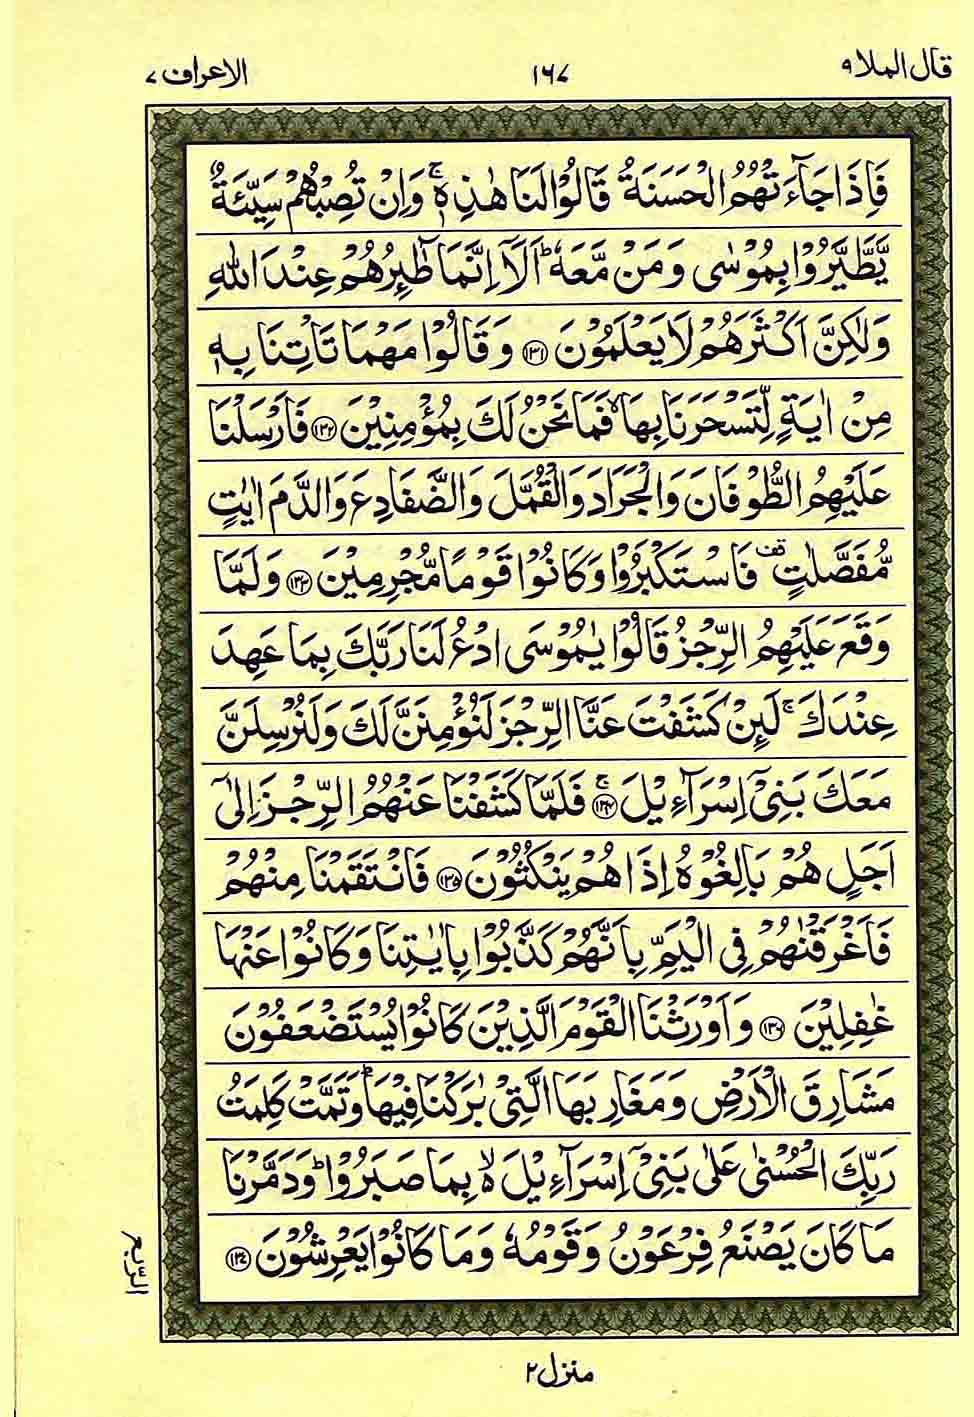 قال الملا ٩ ١٦٧ الاعراف ٧
فَاِذَا جَآءَتْهُمُ الْحَسَنَةُ قَالُوْا لَنَا هٰذِهٖ ۚ وَاِنْ تُصِبْهُمْ سَيِّئَةٌ
يَّطَّيَّرُوْا بِمُوْسٰى وَمَنْ مَّعَهٗ ؕ اَلَاۤ اِنَّمَا طٰٓئِرُهُمْ عِنْدَ اللّٰهِ
وَلٰكِنَّ اَكْثَرَهُمْ لَا يَعْلَمُوْنَ ﴿۱۳۱﴾ وَقَالُوْا مَهْمَا تَاْتِنَا بِهٖ
مِنْ اٰيَةٍ لِّتَسْحَرَنَا بِهَا ۙ فَمَا نَحْنُ لَكَ بِمُؤْمِنِيْنَ ﴿۱۳۲﴾ فَاَرْسَلْنَا
عَلَيْهِمُ الطُّوْفَانَ وَالْجَرَادَ وَالْقُمَّلَ وَالضَّفَادِعَ وَالدَّمَ اٰيٰتٍ
مُّفَصَّلٰتٍ قف فَاسْتَكْبَرُوْا وَكَانُوْا قَوْمًا مُّجْرِمِيْنَ ﴿۱۳۳﴾ وَلَمَّا
وَقَعَ عَلَيْهِمُ الرِّجْزُ قَالُوْا يٰمُوْسَى ادْعُ لَنَا رَبَّكَ بِمَا عَهِدَ
عِنْدَكَ ۚ لَئِنْ كَشَفْتَ عَنَّا الرِّجْزَ لَنُؤْمِنَنَّ لَكَ وَلَنُرْسِلَنَّ
مَعَكَ بَنِيْۤ اِسْرَآءِيْلَ ﴿۱۳۴﴾ ۚ فَلَمَّا كَشَفْنَا عَنْهُمُ الرِّجْزَ اِلٰۤى
اَجَلٍ هُمْ بَالِغُوْهُ اِذَا هُمْ يَنْكُثُوْنَ ﴿۱۳۵﴾ فَانْتَقَمْنَا مِنْهُمْ
فَاَغْرَقْنٰهُمْ فِي الْيَمِّ بِاَنَّهُمْ كَذَّبُوْا بِاٰيٰتِنَا وَكَانُوْا عَنْهَا
غٰفِلِيْنَ ﴿۱۳۶﴾ وَاَوْرَثْنَا الْقَوْمَ الَّذِيْنَ كَانُوْا يُسْتَضْعَفُوْنَ
مَشَارِقَ الْاَرْضِ وَمَغَارِبَهَا الَّتِيْ بٰرَكْنَا فِيْهَا ؕ وَتَمَّتْ كَلِمَتُ
رَبِّكَ الْحُسْنٰى عَلٰى بَنِيْۤ اِسْرَآءِيْلَ ۙ بِمَا صَبَرُوْا ؕ وَدَمَّرْنَا
مَا كَانَ يَصْنَعُ فِرْعَوْنُ وَقَوْمُهٗ وَمَا كَانُوْا يَعْرِشُوْنَ ﴿۱۳۷﴾
الرّبع
منزل ٢